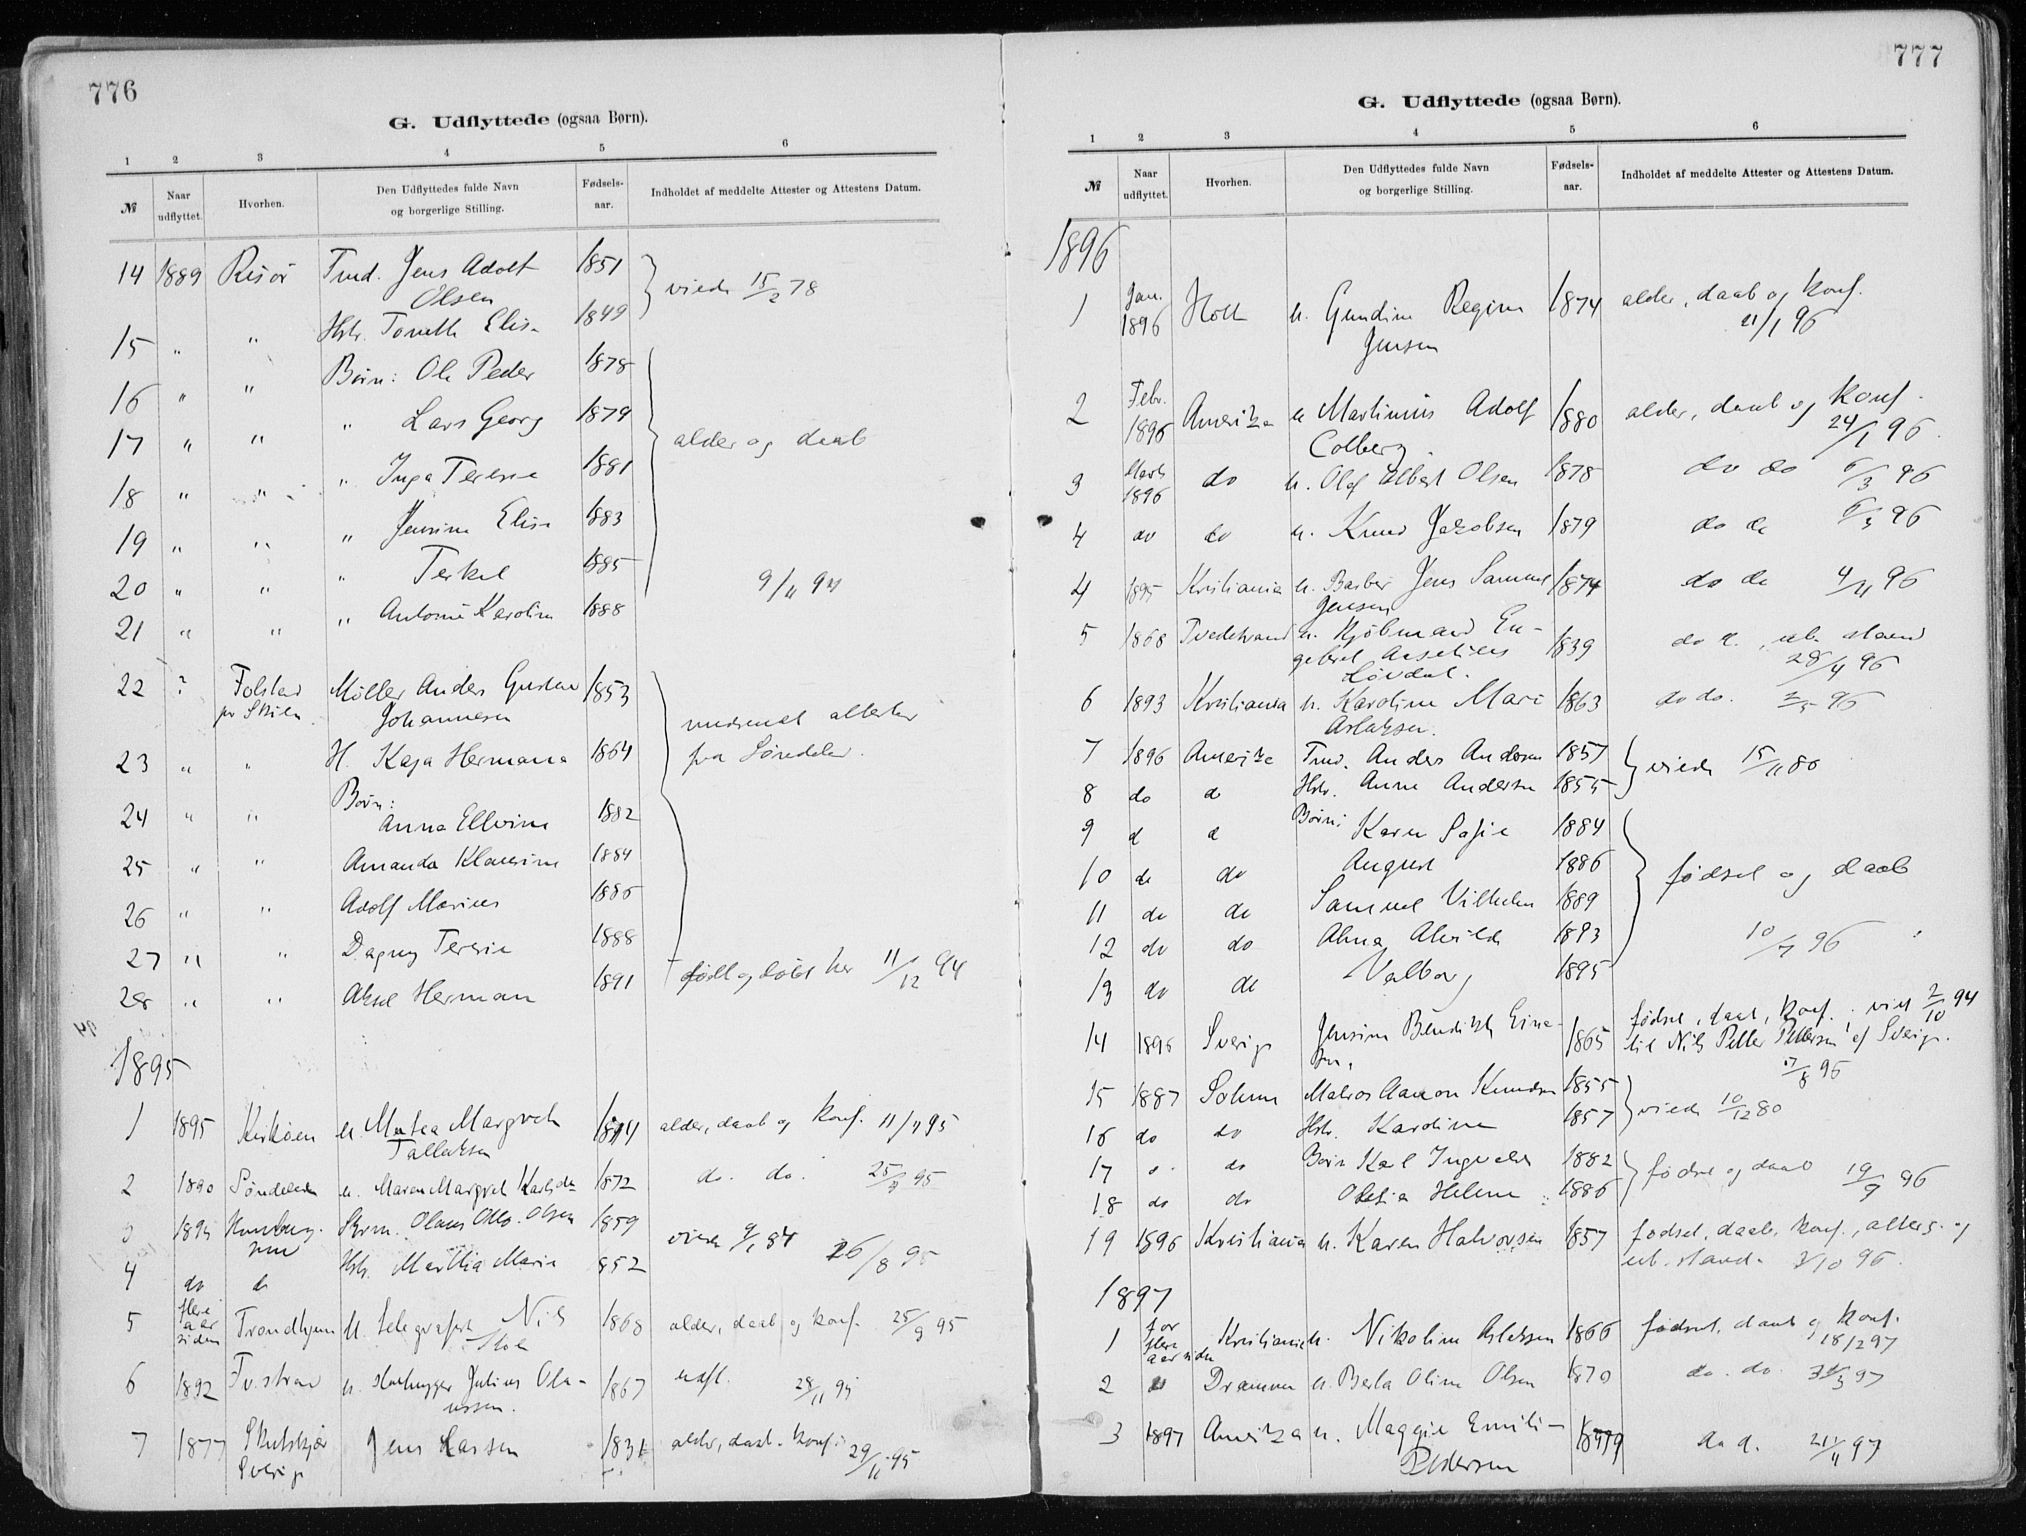 776
G. Udflyttede (ogsaa Børn).
1 2 3 4 5 6
№ Naar udflyttet. Hvorhen. Den Udflyttedes fulde Navn og borgerlige Stilling. Fødsels-aar. Indholdet af meddelte Attester og Attestens Datum.
14 1889 Risør Tmd. Jens Adolf 1851
Olsen viede 15/2 78
15 " " Hstr. Tomette Elise 1849
16 " " Børn: Ole Peder 1878
17 " " " Lars Georg 1879 alder og daab
18 " " " Inga Terese 1881
19 " " " Jensine Elise 1883
20 " " " Terkel 1885 9/11 94
21 " " " Antonie Karoline 1888
22 ? Folstad Møller Anders Gustav 1853
pr Skien Johannesen
23 " " H. Kaja Hermana 1864 fra Søndeled.
24 " " Børn:
Anna Ellevine 1882
25 " " Amanda Klausine 1884
26 " " Adolf Marius 1886
27 " " Dagny Teresie 1888
28 " " Aksel Herman 1891 født og døbt her 11/12 94
1895
1 1895 u. Matea Margrete alder, daab og konf. 11/11 95
Tallaksen
2 1890 Søndeled u. Maren Margret 1872 do. do. 25/3 95
3 1895 Olaus Otto Olsen 1859 viede 84 26/8 95
4 do do Hstr. Marthia Marie 1852
5 flere aar siden Trondhjem u. telegrafist Nils 1868 alder, daab og konf. 25/9 95
6 1892 Tv.strand u. Stenhugger Julius Ola- 1867 udfl. 28/11 95
ussen.
7 1877 Skutskjær Jens Larsen 1831 alder, daab. konf. 29/11 95
Sverige
777
G. Udflyttede (ogsaa Børn).
1 2 3 4 5 6
№ Naar udflyttet. Hvorhen. Den Udflyttedes fulde Navn og borgerlige Stilling. Fødsels-aar. Indholdet af meddelte Attester og Attestens Datum.
1896
1 Jan. 1896 Holt u. Gundine Regine 1874 alder, daab og konf.
Jensen 11/1 96
2 Febr. 1896 Amerika u Martinius Adolf 1880 alder, daab og konf.
Colberg. 24/1 96.
3 Marts 1896 do u. Olaf Albert Olsen 1878 do do 6/3 96
4 do do u. Knud Jakobsen 1879 do do 6/3 96
4 1895 Kristiania u. Barber Jens Samuel 1874 do do 4/4 96
Jensen
5 1868 Tvedestrand u. Kjøbmand En- 1839 do d., ub. stand
gebret Løvdal. 28/4 96
6 1893 Kristiania u. Karoline Marie 1863 do do. 2/5 96
Aslaksen.
7 1896 Amerika Tmd. Anders Andersen 1857 viede 15/11 80
8 do d Hstr. Anne Andersen 1855
9 d d Børn: Karen Sofie 1884
10 do do August 1886 fødsel og daab
11 do do Samuel Vilhelm 1889
12 do do Alma Alvilde 1893 10/7 96
13 do do Valborg 1895
14 1896 Sverige Jensine Bendikte Eine- 1865 fødsel, daab, konf. viet 2/10 94
sen, til Nils Petter Pettersen af Sverige.
96
15 1887 Solum Matros Aanon Knudsen 1855 viede 10/12 80
16 do do Hstr. Karoline 1857
17 do do Børn Karl Ingvald 1882 fødsel og daab 19/9 96
18 do do Helene 1886
19 1896 Kristiania u. Karen Halvorsen 1857 fødsel, daab, konf., og
ub. stand. 3/10 96.
1897
1 for flere aar siden Kristiania u. Nikoline Aslaksen 1866 fødsel, daab og konf.
18/2 97
2 Drammen u. Berta Oline Olsen 1870 do. do. 97
3 1897 Amerika u. Maggie Emilie 1879 do d. 97
Pedersen